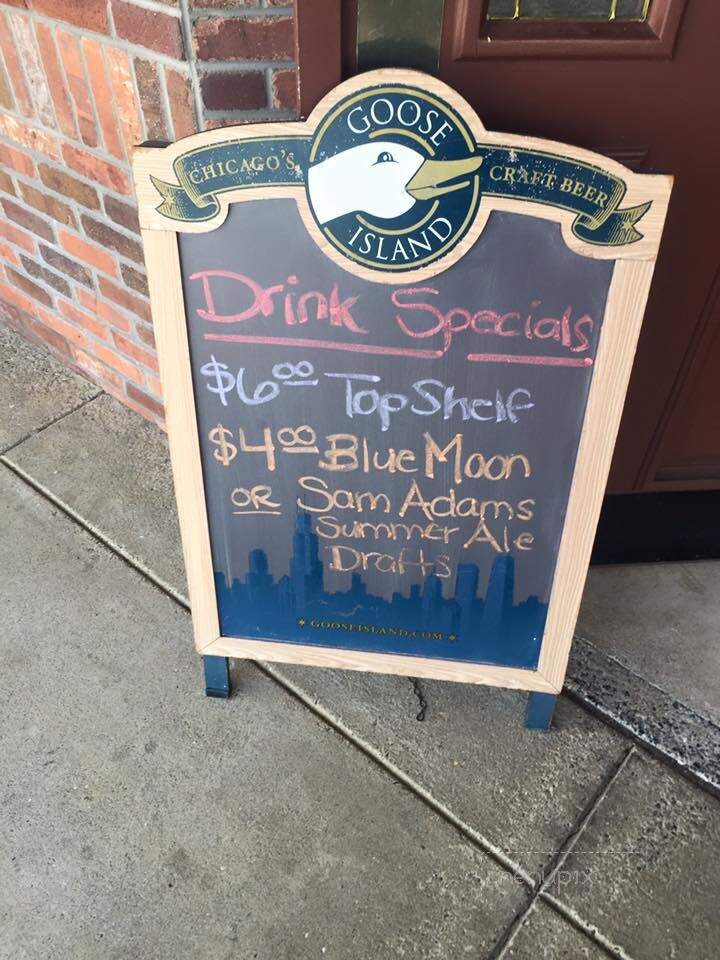 GOOSE
CHICAGO'S
CRAFT BEER
ISLAND
Drink Specials
$6.00 Top Shelf
$4.00 Blue Moon
OR Sam Adams
Summer Ale
Drafts
* GOOSEISLAND.COM *
menupix